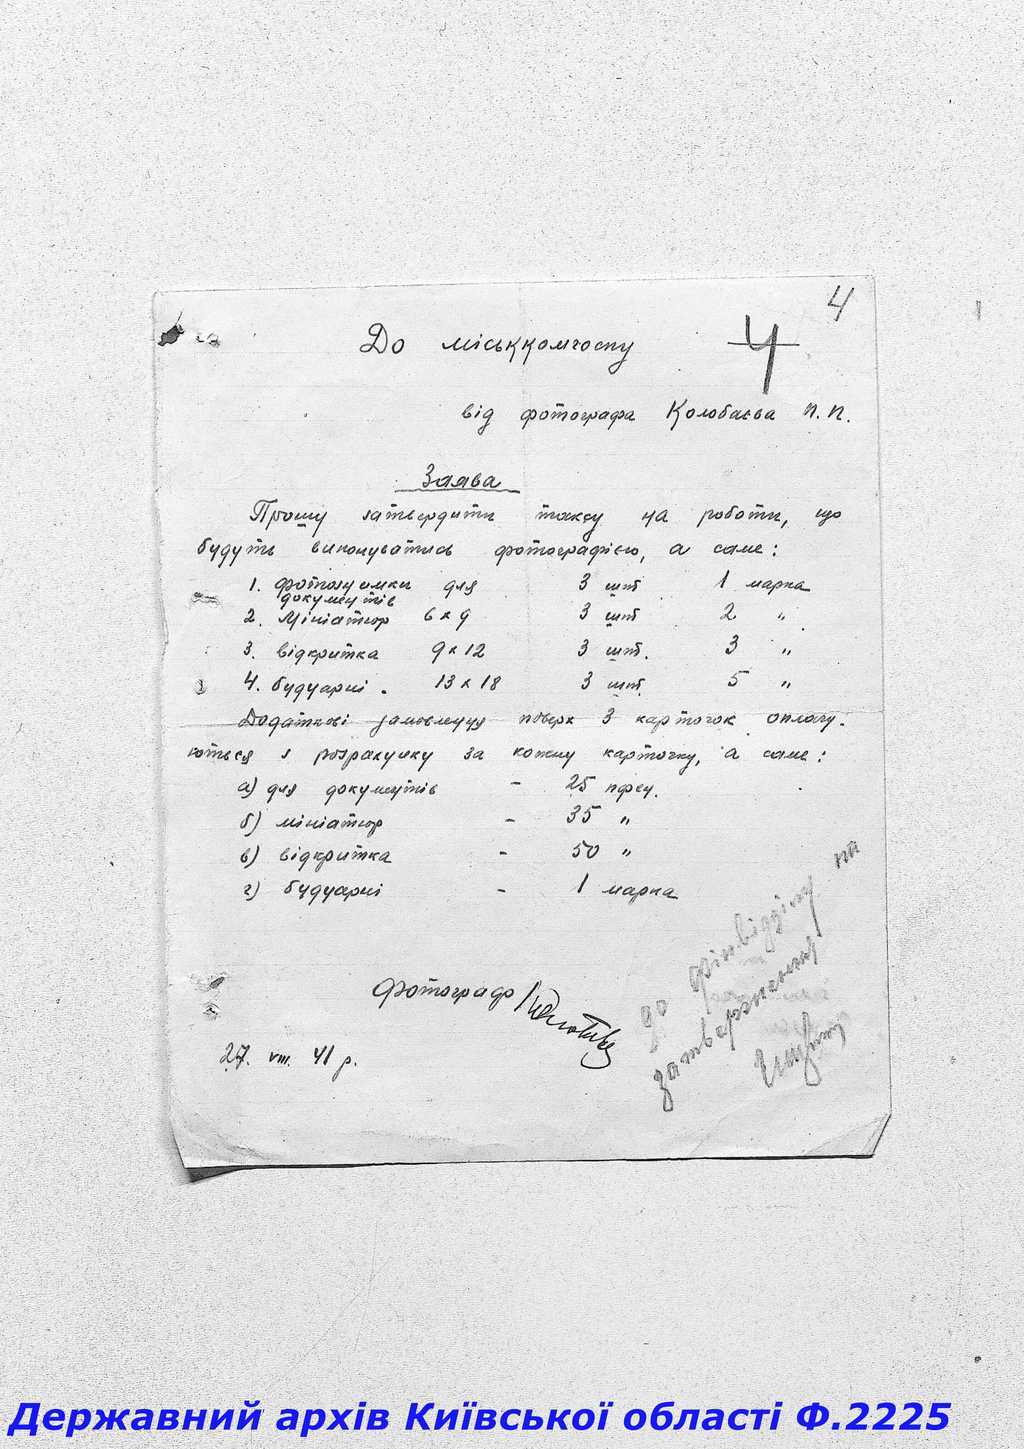 4
До міськкомгоспу
4
від фотографа Колобаєва П.П.
Заява
Прошу затвердити таксу на роботи, що
будуть виконуватись фотографією, а саме:
1. фотознимки для 3 шт 1 марка
документів
2. Мініатюр 6х9 3 шт 2 "
3. відкритка 9х12 3 шт. 3 "
4. будуарні. 13х18 3 шт. 5 "
Додаткові замовлення поверх 3 карточок оплачу-
ються з розрахунку за кожну карточку, а саме:
а) для документів - 25 пфен.
б) мініатюр - 35 "
в) відкритка - 50 "
г) будуарні - 1 марка
Фотограф
27. VIII. 41 р.
До фінвідділу на
затвердження
Державний архів Київської області Ф.2225